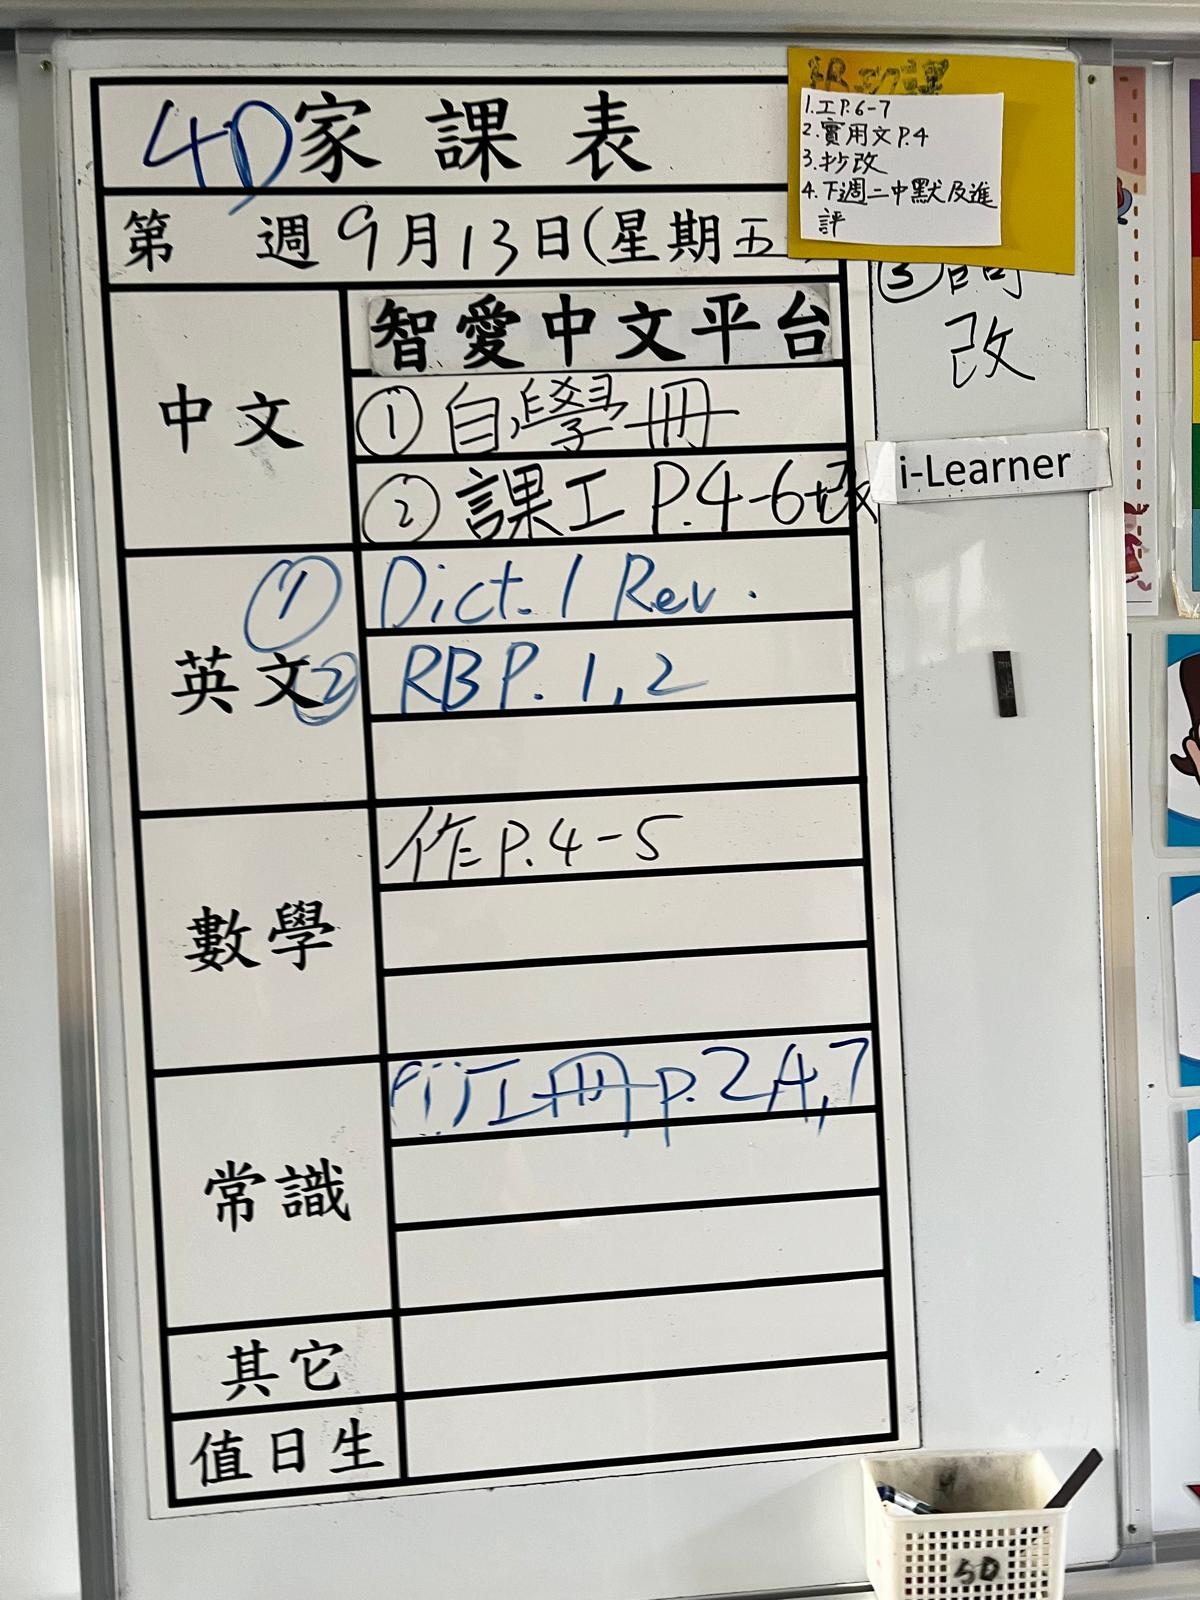 4D家課表
第 週9月13日(星期五
中文
智愛中文平台
①自學冊
②課工 P.4-6改
③詞
改
i-Learner
英文
① Dict. 1 Rev.
② RB P. 1, 2
數學
作 P.4-5
常識
冊 p.2 4,7
其它
值日生
1.工P.6-7
2.實用文P.4
3.抄改
4.下週二中默及進
評
5D